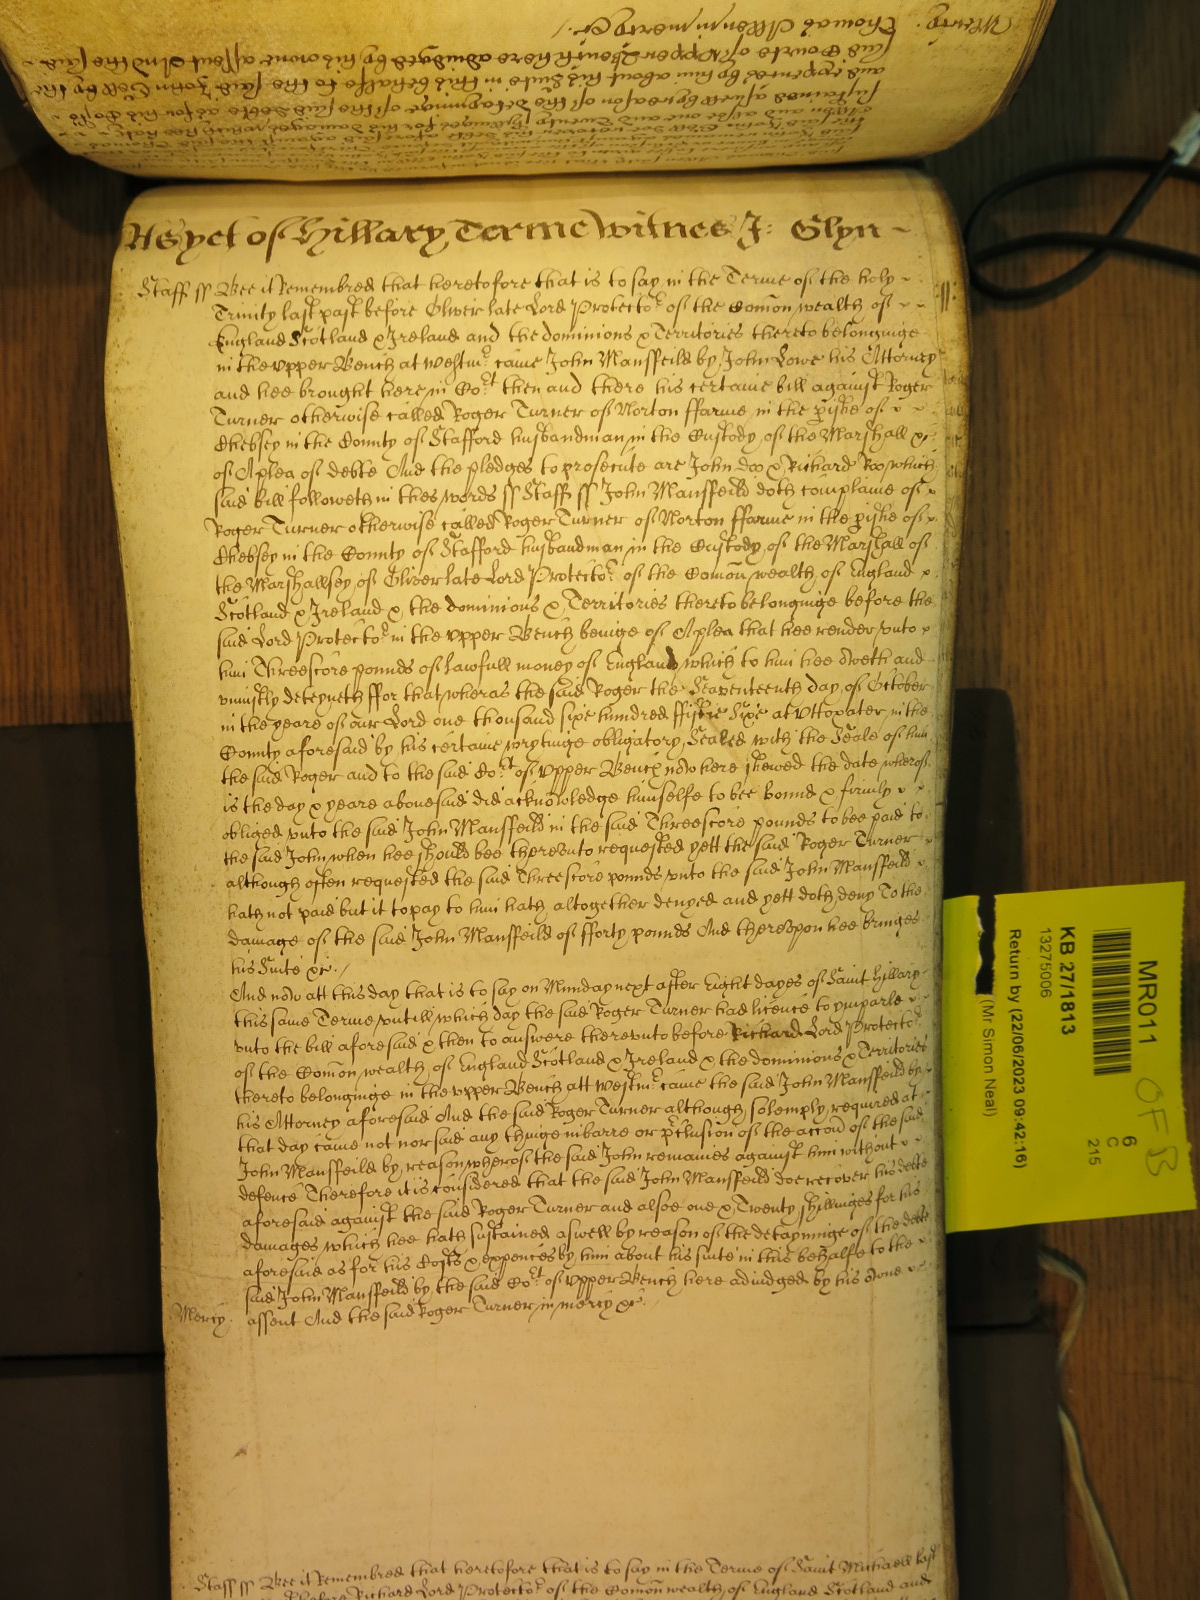 Thomas Allen in mercy &c.
Mercy.
As yet of Hillary Terme Witnes J: Glyn
Staff ss Bee it Remembred that heretofore that is to say in the Terme of the holy
Trinity last past before Oliver late Lord Protector of the Com̄on wealth of
England Scotland & Ireland and the dominions & Territories thereto belonginge
in the vpper Bench at Westmr. came John Mansfeild by John Lowe his Attorney
and hee brought here in Cort then and there his certaine bill against Roger
Turner otherwise called Roger Turner of Norton ffarme in the pishe of
Chebsey in the County of Stafford husbandman in the Custody of the Marshall &c.
of A plea of debte And the pledges to prosecute are John doo & Richard Roo which
said bill followeth in thes words ss Staff ss John Mansfeild doth complaine of
Roger Turner otherwise called Roger Turner of Norton ffarme in the pishe of
Chebsey in the County of Stafford husbandman in the Custody of the Marshall of
the Marshallsey of Oliver late Lord Protector of the Com̄on wealth of England &
Scotland & Ireland & the dominions & Territories thereto belonginge before the
said Lord Protector in the vpper Bench beinge of A plea that hee render vnto
him Threescore pounds of lawfull money of England which to him hee oweth and
vniustly deteyneth ffor that wheras the said Roger the Seaventeenth day of October
in the yeare of our Lord one thousand sixe hundred ffiftie Sixe at Vttoxater in the
County aforesaid by his certaine wrytinge obligatory Sealed with the Seale of him
the said Roger and to the said Cort of vpper Bench now here shewed the date wherof
is the day & yeare abouesaid did acknowledge himselfe to bee bound & firmly
obliged vnto the said John Mansfeild in the said Threescore pounds to bee paid to
the said John when hee should bee therevnto requested yett the said Roger Turner
although often requested the said Threescore pounds vnto the said John Mansfeild
hath not paid but it to pay to him hath altogether denyed and yett doth deny To the
damage of the said John Mansfeild of fforty pounds And therevpon hee bringes
his Suite &c. /
And now att this day that is to say on Munday next after Eight dayes of Saint Hillary
this same Terme vntill which day the said Roger Turner had licence to ymparle
vnto the bill aforesaid & then to answere therevnto before Richard Lord Protector
of the Com̄on wealth of England Scotland & Ireland & the dominions & Territories
thereto belonginge in the vpper Bench att Westmr. came the said John Mansfeild by
his Attorney aforesaid And the said Roger Turner although solemply required at
that day came not nor said any thinge in barre or p̄clusion of the accon̄ of the said
John Mansfeild by reason wherof the said John remaines against him without
defence Therefore it is considered that the said John Mansfeild doe recover his debte
aforesaid against the said Roger Turner and alsoe one & Twenty shillinges for his
damages which hee hath sustained aswell by reason of the detayninge of the debte
aforesaid as for his Costs & expences by him about his suite in this behalfe to the
said John Mansfeild by the said Cort of vpper Bench here adiudged by his owne
assent And the said Roger Turner in mercy &c.
Mercy.
Staff ss Bee it Remembred that heretofore that is to say in the Terme of Saint Michaell last
before Richard Lord Protector of the Com̄on wealth of England Scotland and
MR011
6
C
215
KB 27/1813
13275006
Return by (22/06/2023 09:42:16)
(Mr Simon Neal)
OF B